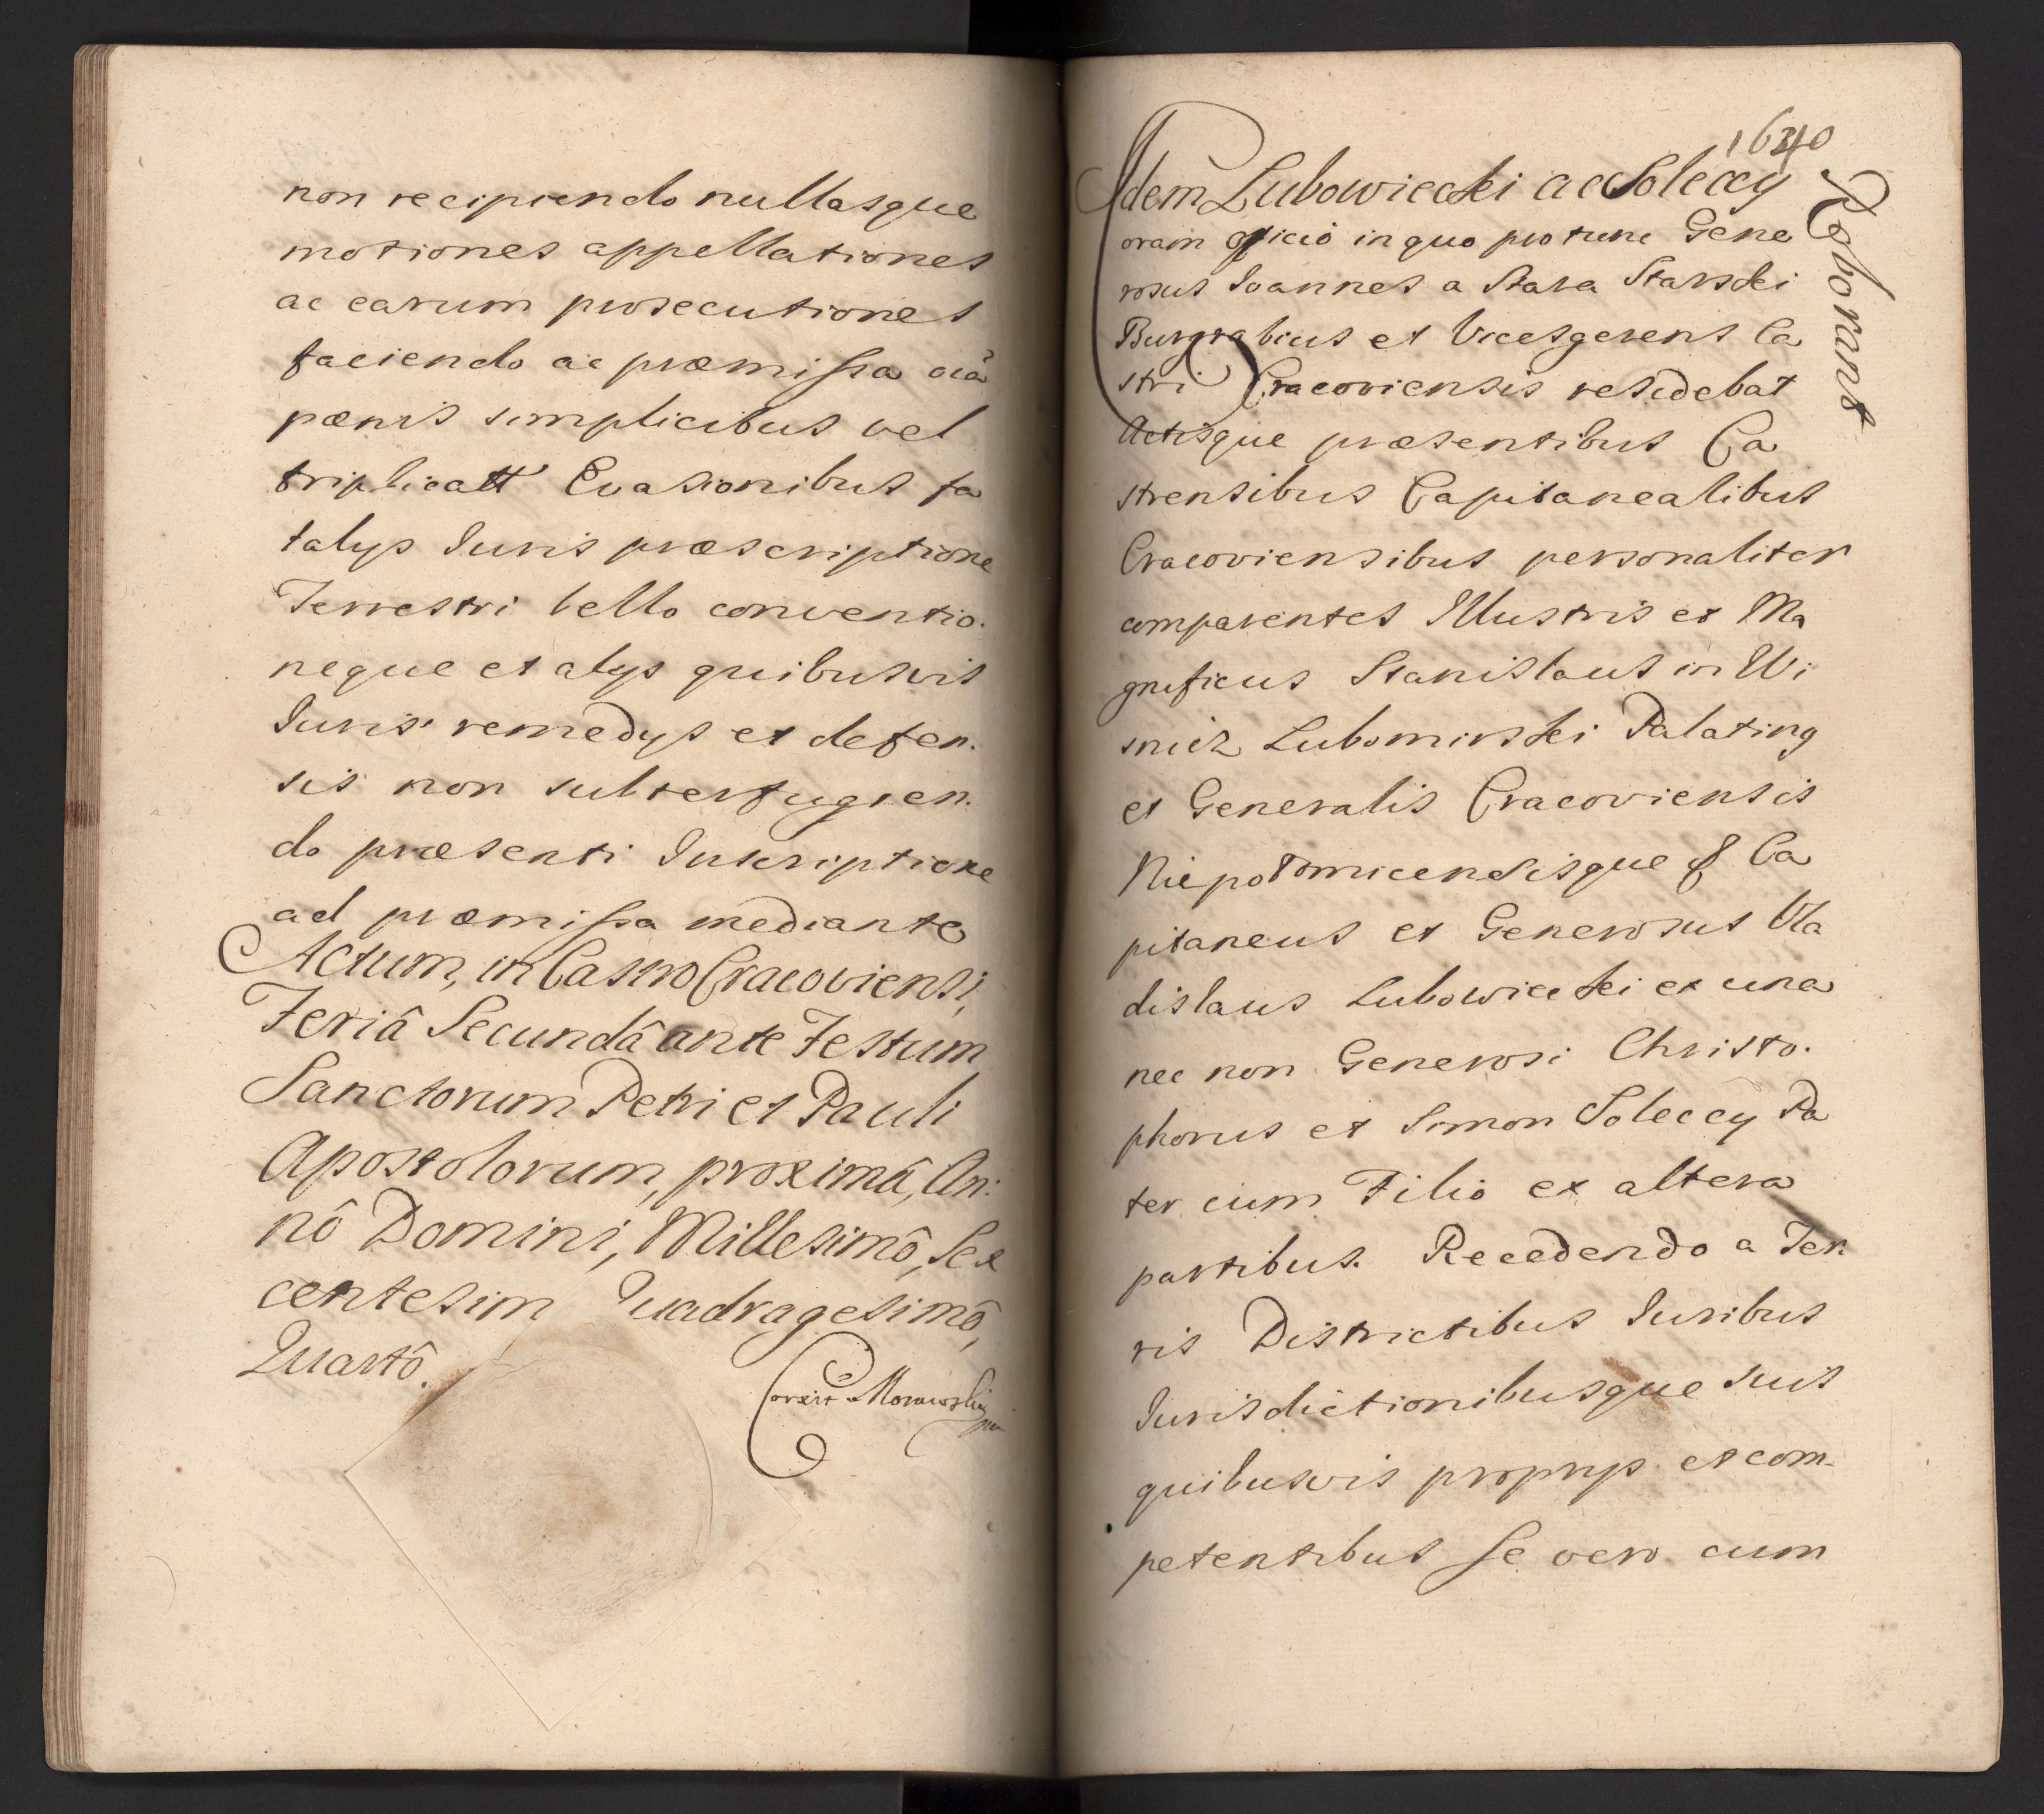 non recipiendo nullasque
motiones appellationes
ac earum prosecutiones
faciendo ac præmissa oiã
pænis simplicibus vel
triplicatt Evasionibus fa
talys Juris præscriptione
Terrestri bello conventio.
neque et alys quibusvis
Juris remedys et defen.
sis non subterfugien.
do præsenti Inscriptione
ad præmissa mediante
Actum, in Castro Cracoviensi,
Feriâ Secundâ ante Festum
Sanctorum Petri et Pauli
Apostolorum, proximâ, An:
nô Domini, Millesimô, Sex
centesim Quadragesimô,
Quartô.
Correxit Morawski
1640
Roborant
Idem Lubowiecki ac Soleccy
oram officio in quo pro tunc Gene
rosus Joannes a Stara Starski
Burgrabius et Vicesgerens Ca
stri Cracoviensis residebat
Actisque præsentibus Ca
strensibus Capitanealibus
Cracoviensibus personaliter
comparentes Illustris et Ma
gnificus Stanislaus in Wi
snicz Lubomirski Palating
et Generalis Cracoviensis
Niepotomicensisque & Ca
pitaneus et Generosus Vla
dislaus Lubowiecki ex una
nec non Generosi Christo.
phorus et Simon Soleccy Pa
ter cum Filio ex altera
partibus. Recedendo a Ter.
ris Districtibus Juribus
Jurisdictionibusque suis
quibusvis proprys et com-
petentibus se vero cum